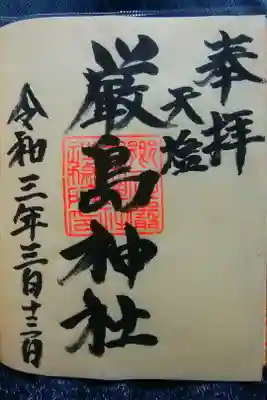 奉拝
天塩
厳島神社
令和三年三月十三日